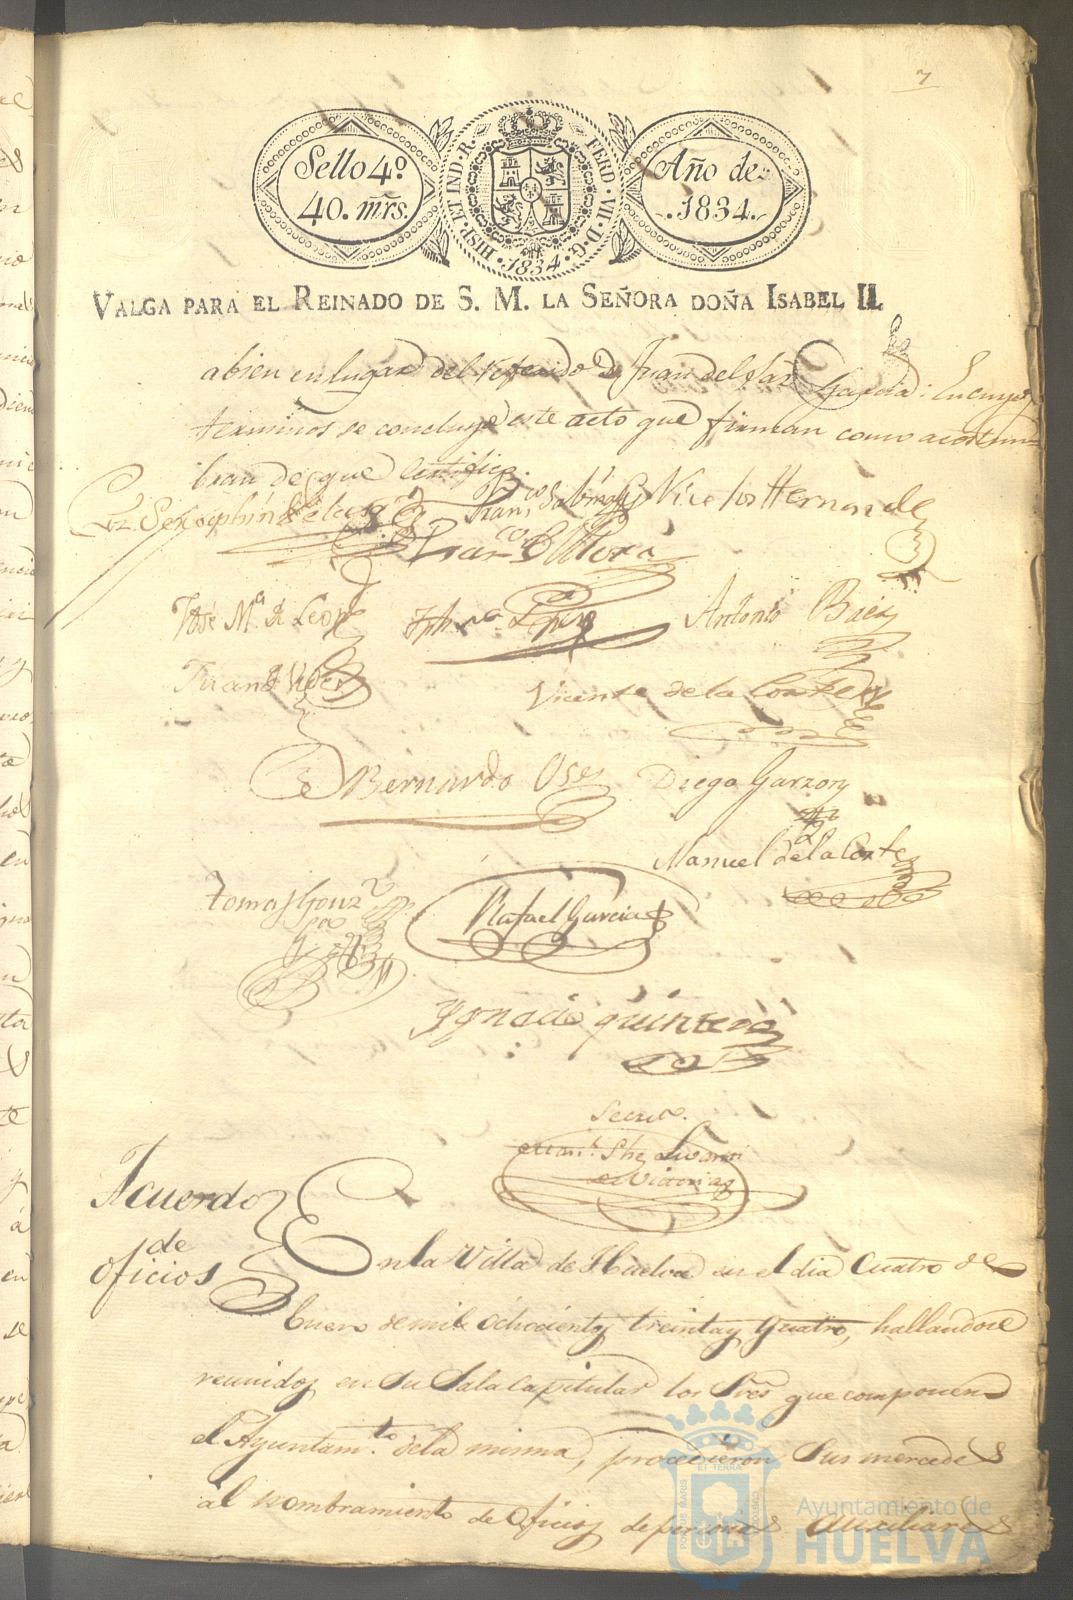 7
Sello 4º
40. mrs.
HISP. ET IND. R. FERD. VII. D. G. 1834
Año de
1834.
VALGA PARA EL REINADO DE S. M. LA SEÑORA DOÑA ISABEL II.
abien en lugar del referido D. Juan del Garcia: En cuyos
terminos se concluyó este acto que firman como acostum
bran de que Certifico
Vicelos Hernande
Franco Mora
José Mª de Leon
Lopez
Antonio Baez
Juan
Vicente de la Corte
Bernardo Oses
Diego Garzon
Manuel de la Corte
Tomas Gonz
Rafael Garcia
Ygnacio quintero
Secreto.
Acuerdo
de
oficios
En la Villa de Huelva en el dia Cuatro de
Enero de mil ochocientos treinta y quatro, hallandose
reunidos en su Sala Capitular los Sres que componen
el Ayuntamto de la misma, procedieron Sus mercedes
al nombramiento de Oficios de personas Auxiliares
Ayuntamiento de
HUELVA